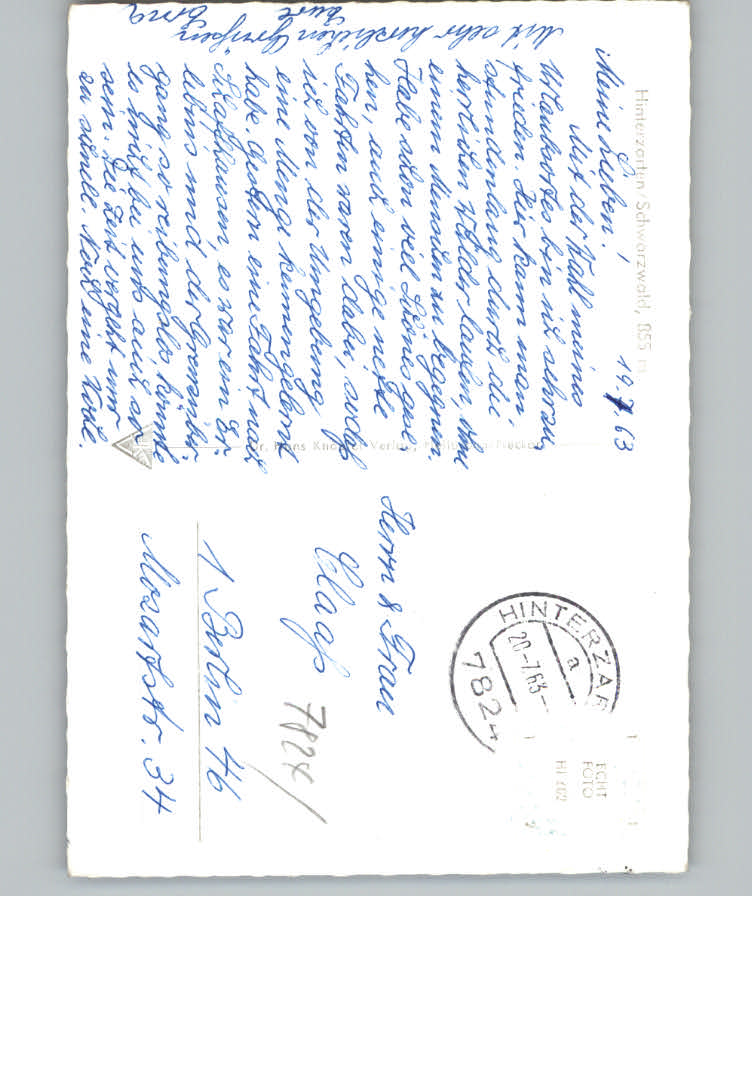 Hinterzarten / Schwarzwald, 855 m
19.7.63
Meine Lieben!
Mit der Wahl meines
Urlaubsortes bin ich sehr zu-
frieden. Hier kann man
stundenlang durch die
herrlichen Wälder laufen, ohne
einem Menschen zu begegnen.
Habe schon viel Schönes gese-
hen, auch einige nette
Fahrten waren dabei, sodaß
ich von der Umgebung
eine Menge kennengelernt
habe. Gestern eine Fahrt nach
"Schaffhausen" es war ein Er-
lebnis und der Grenzüber-
gang so reibungslos könnte
es nur bei uns auch so
sein. Die Zeit vergeht nur
zu schnell. Noch eine Woche.
Mit sehr herzlichen Grüßen
Eure
Dr. Hans Verlag,
Herrn & Frau
Claaß
1 Berlin 46
Mozartstr. 34
7824
HINTERZAR
20.-7.63-
a
7824
ECHT
FOTO